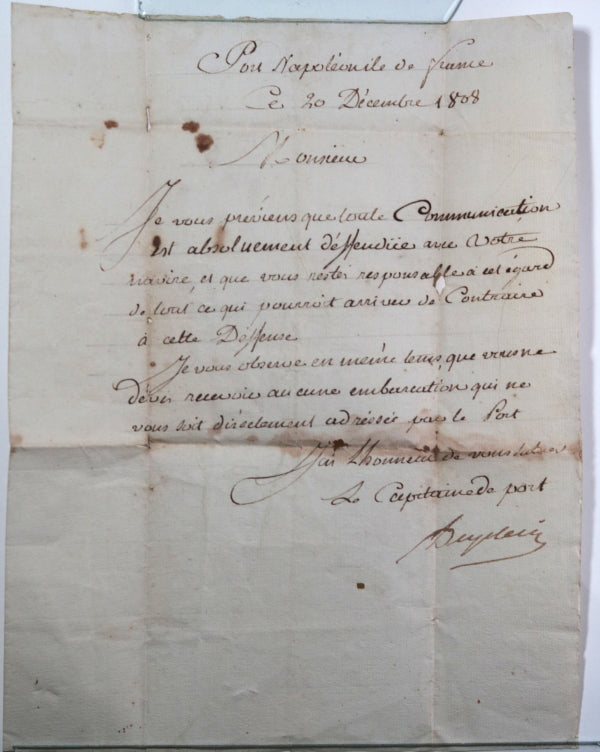 Port Napoléon ile de france
Ce 20 Décembre 1808
Monsieur
Je vous préviens que toute Communication
Est absoluement déffendüe avec Votre
navire, et que vous restés responsable à cet égard
de tout ce qui pourroit arriver de Contraire
à cette Déffense
Je vous observe en même tems que vous ne
devés recevoir aucune embarcation qui ne
vous soit directement adréssée par le Port
J'ai Lhonneur de vous saluer
Le Capitaine de port